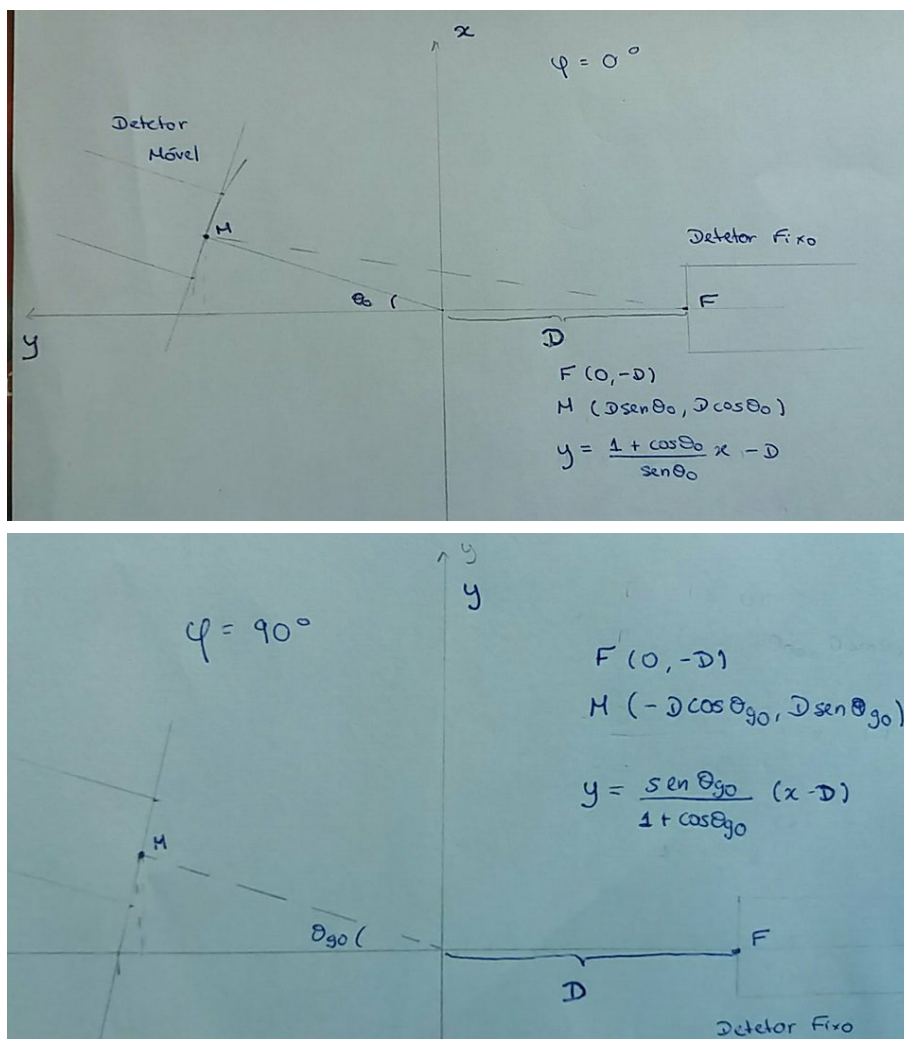 x
φ = 0°
Detetor
Móvel
M
Detetor Fixo
θ₀ (
F
y
D
F (0,-D)
M (Dsenθ₀, Dcosθ₀)
y = (1 + cosθ₀)/(senθ₀) x - D
y
y
φ = 90°
F (0, -D)
M (-Dcosθ₉₀, Dsenθ₉₀)
y = (senθ₉₀)/(1 + cosθ₉₀) (x-D)
M
θ₉₀ (
F
D
Detetor Fixo